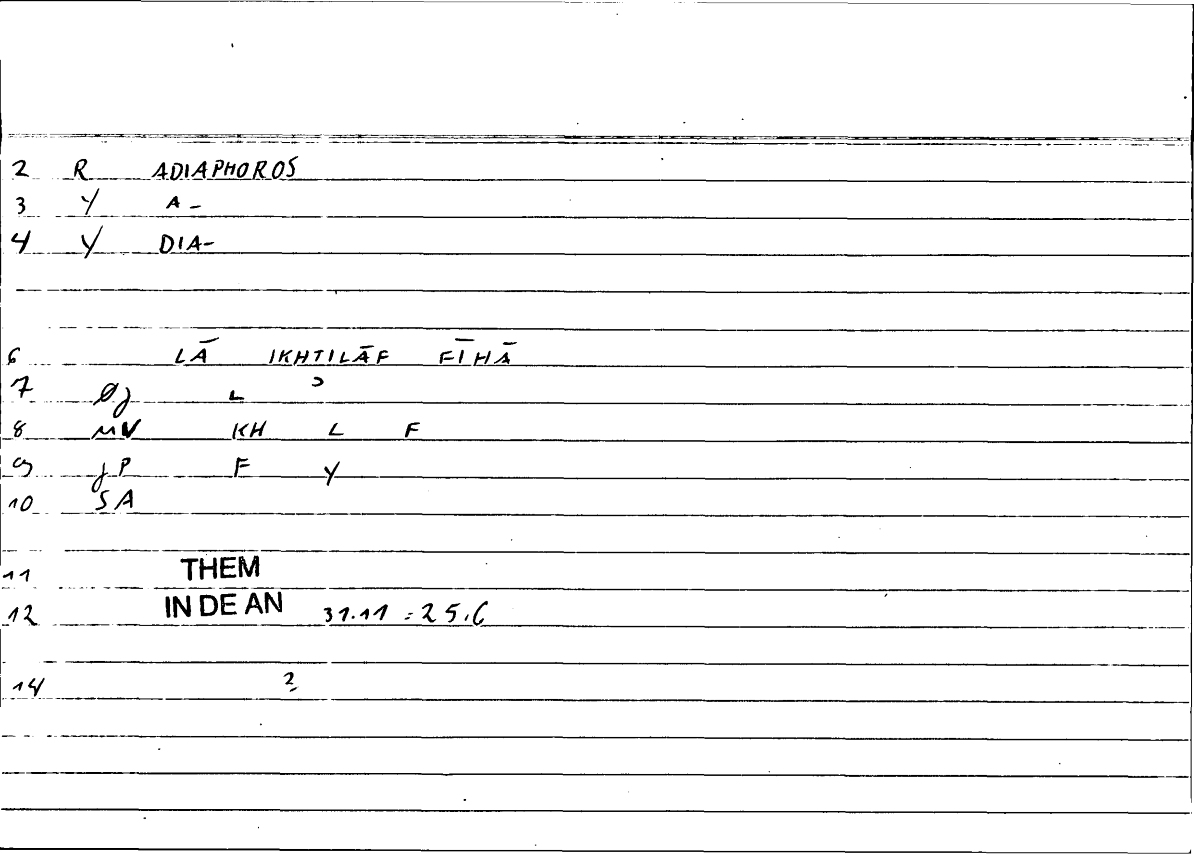 2 R ADIAPHOROS
3 Y A-
4 Y DIA-
6 LĀ IKHTILĀF FĪHĀ
7 Øj L ɔ
8 MV KH L F
9 jP F Y
10 SA
11 THEM
12 IN DE AN 31.11 = 25.6
14 2